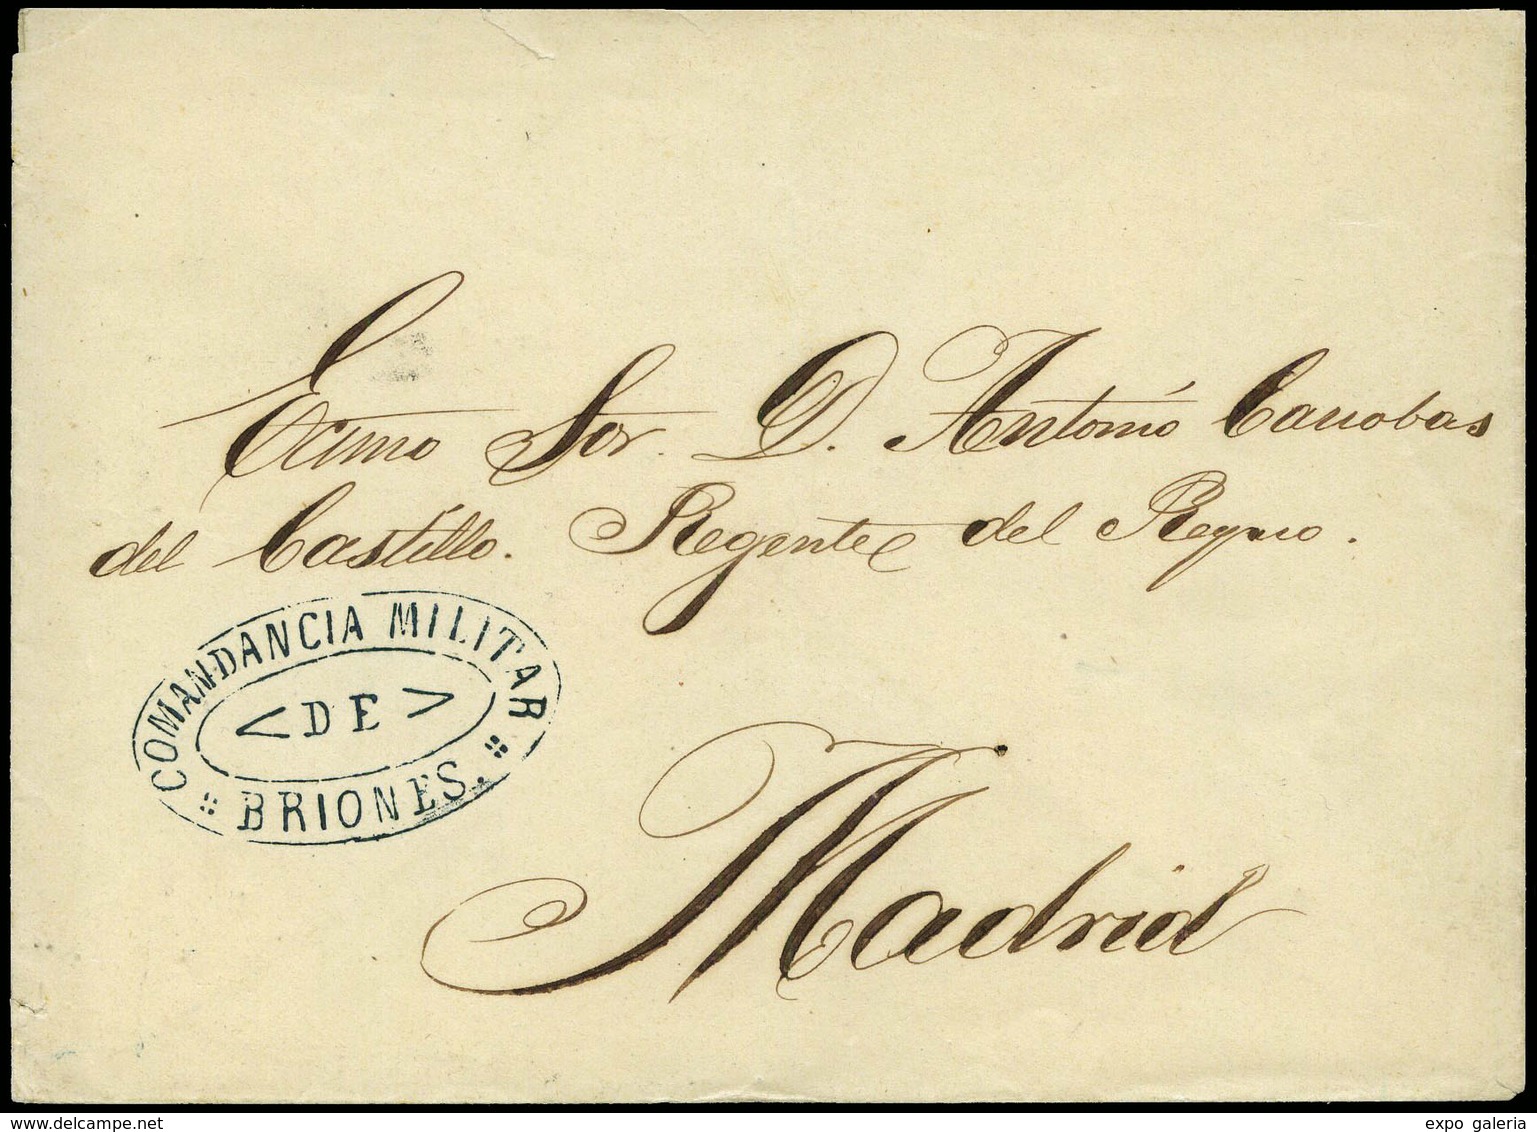 Ecimo Sor. D. Antonió Canobas
del Castillo. Regente del Reyno.
COMANDANCIA MILITAR
< DE >
BRIONES.
Madrid
www.delcampe.net
expo galeria